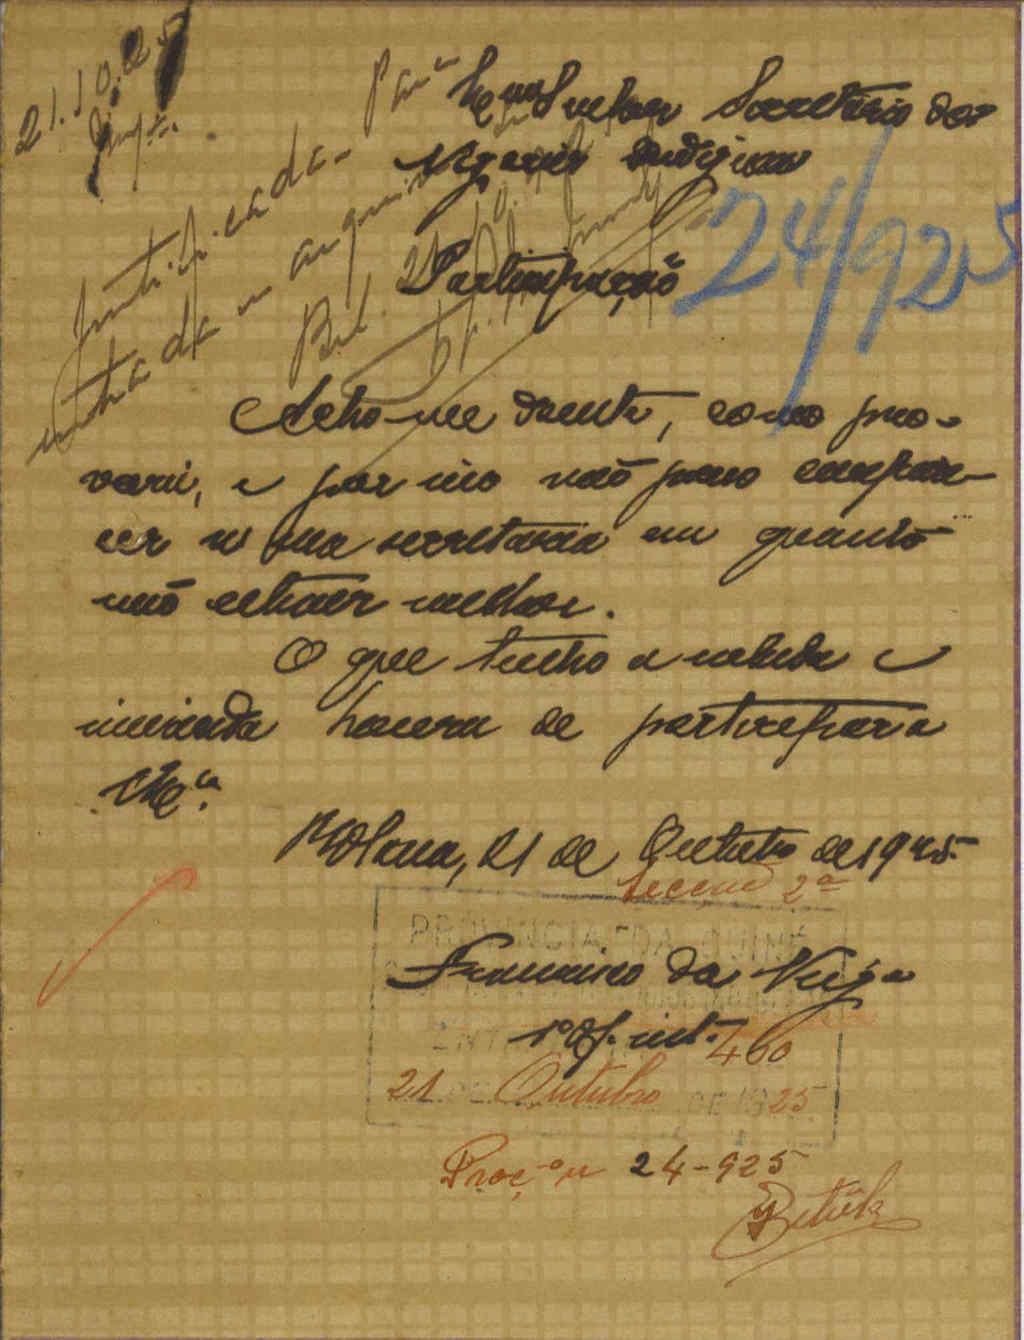 21.10.25
Justificada. Para
entrada no arquivo
Exmo Senhor Secretário dos
Negocios Indigenas
24/925
Participação
Acho-me doente, como pro-
varei, e por isso não posso compare-
cer n' sua secretaria em quanto
não estiver melhor.
O que tenho a subida e
merecida honra de participar a
V. Ex.cia.
Bolama, 21 de Outubro de 1925.
Secção 2ª
PROVINCIA DA GUINÉ
da Veiga
1º Of. int.
ENTRADA 460
21 DE Outubro DE 1925
Proc.º nº 24-925